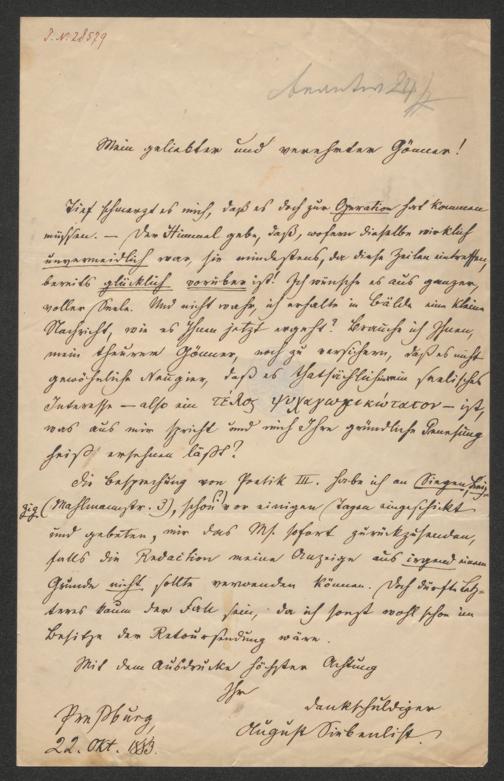 J. N. 28579
beantw 24/X
Mein geliebter und verehrter Gönner!
Tief schmerzt es mich, daß es doch zur Operation hat kommen
müssen. — Der Himmel gebe, daß, wofern dieselbe wirklich
unvermeidlich war, sie mindestens, da diese Zeilen eintreffen,
bereits glücklich vorüber ist! Ich wünsche es aus ganzer,
voller Seele. Und nicht wahr, ich erhalte in Bälde eine kleine
Nachricht, wie es Ihnen jetzt ergeht? Brauche ich Ihnen,
mein theurer Gönner, noch zu versichern, daß es nicht
gewöhnliche Neugier, daß es thatsächlich ein seelisches
Interesse — also ein τέλος ψυχαγωγικώτατον — ist,
was aus mir spricht und mich Ihre gründliche Genesung
heiß ersehnen läßt?
Die Besprechung von Poetik III. habe ich an Siegen, Leip-
zig (Mahlmannstr. 3), schon (!) vor einigen Tagen eingeschickt
und gebeten, mir das Ms. sofort zurückzusenden,
falls die Redaction meine Anzeige aus irgend einem
Grunde nicht sollte verwenden können. Doch dürfte Letz-
teres kaum der Fall sein, da ich sonst wohl schon im
Besitze der Retoursendung wäre.
Mit dem Ausdrucke höchster Achtung
Ihr
dankschuldiger
August Siebenlist.
Preßburg,
22. Okt. 1883.